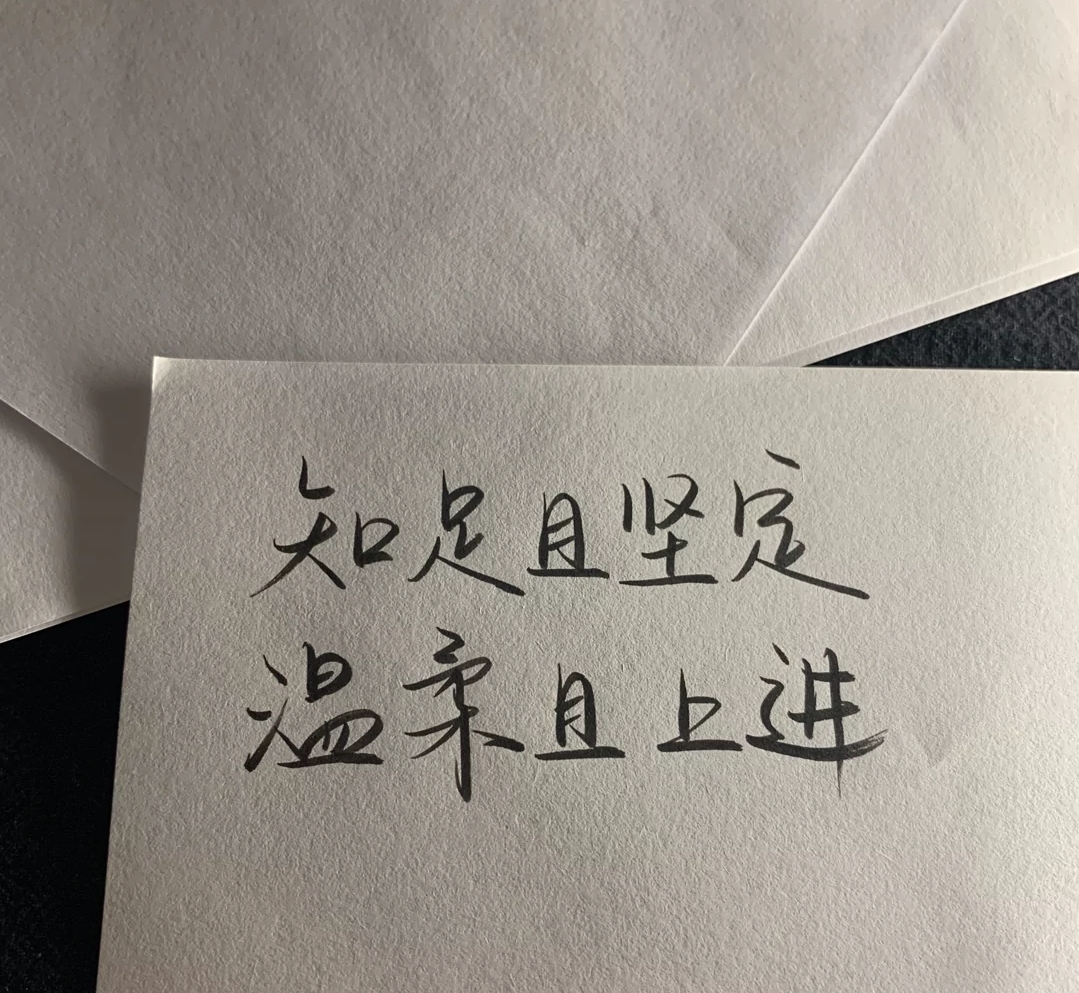 知足且坚定
温柔且上进